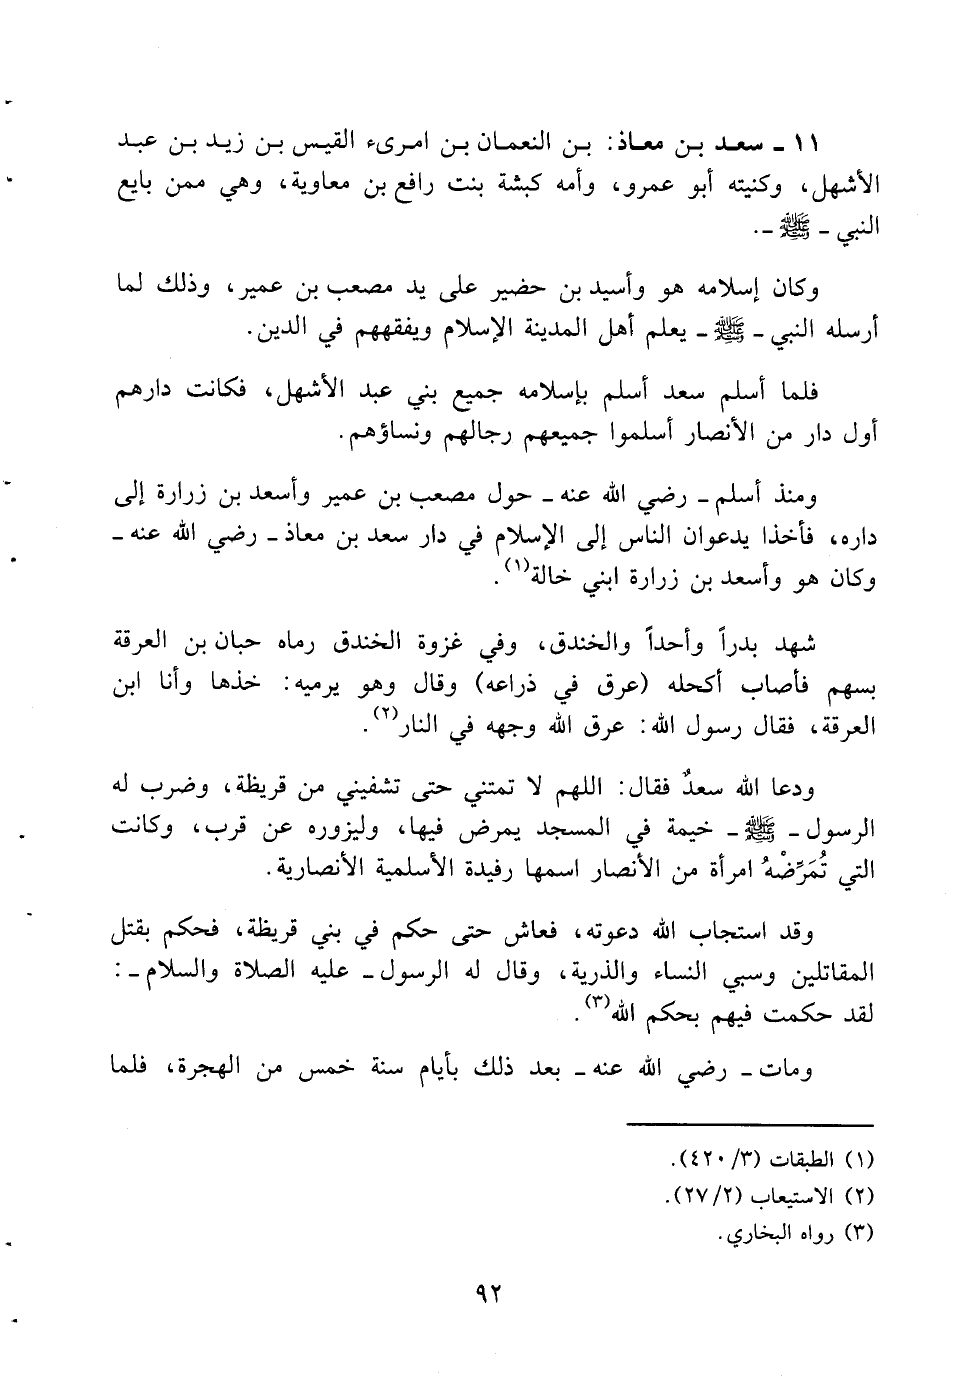 ١١ ـ سعد بن معاذ: بن النعمان بن امرىء القيس بن زيد بن عبد
الأشهل، وكنيته أبو عمرو، وأمه كبشة بنت رافع بن معاوية، وهي ممن بايع
النبي ـ ﷺ ـ.
وكان إسلامه هو وأسيد بن حضير على يد مصعب بن عمير، وذلك لما
أرسله النبي ـ ﷺ ـ يعلم أهل المدينة الإسلام ويفقههم في الدين.
فلما أسلم سعد أسلم بإسلامه جميع بني عبد الأشهل، فكانت دارهم
أول دار من الأنصار أسلموا جميعهم رجالهم ونساؤهم.
ومنذ أسلم ـ رضي الله عنه ـ حول مصعب بن عمير وأسعد بن زرارة إلى
داره، فأخذا يدعوان الناس إلى الإسلام في دار سعد بن معاذ ـ رضي الله عنه ـ
وكان هو وأسعد بن زرارة ابني خالة(١).
شهد بدراً وأحداً والخندق، وفي غزوة الخندق رماه حبان بن العرقة
بسهم فأصاب أكحله (عرق في ذراعه) وقال وهو يرميه: خذها وأنا ابن
العرقة، فقال رسول الله: عرق الله وجهه في النار(٢).
ودعا الله سعدٌ فقال: اللهم لا تمتني حتى تشفيني من قريظة، وضرب له
الرسول ـ ﷺ ـ خيمة في المسجد يمرض فيها، وليزوره عن قرب، وكانت
التي تُمَرِّضْهُ امرأة من الأنصار اسمها رفيدة الأسلمية الأنصارية.
وقد استجاب الله دعوته، فعاش حتى حكم في بني قريظة، فحكم بقتل
المقاتلين وسبي النساء والذرية، وقال له الرسول ـ عليه الصلاة والسلام ـ:
لقد حكمت فيهم بحكم الله(٣).
ومات ـ رضي الله عنه ـ بعد ذلك بأيام سنة خمس من الهجرة، فلما
(١) الطبقات (٣/ ٤٢٠).
(٢) الاستيعاب (٢/ ٢٧).
(٣) رواه البخاري.
٩٢